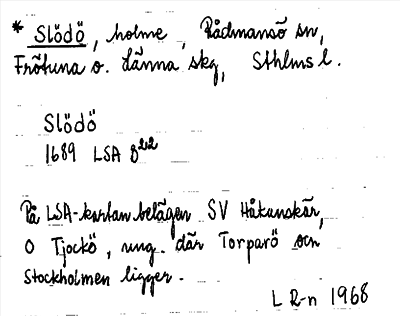 * Slödö, holme, Rådmansö sn,
Frötuna o. Länna skg, Sthlms l.
Slödö
1689 LSA B 22
På LSA-kartan belägen SV Håkanskär,
O Tjockö, ung. där Torparö och
Stockholmen ligger.
L R-n 1968